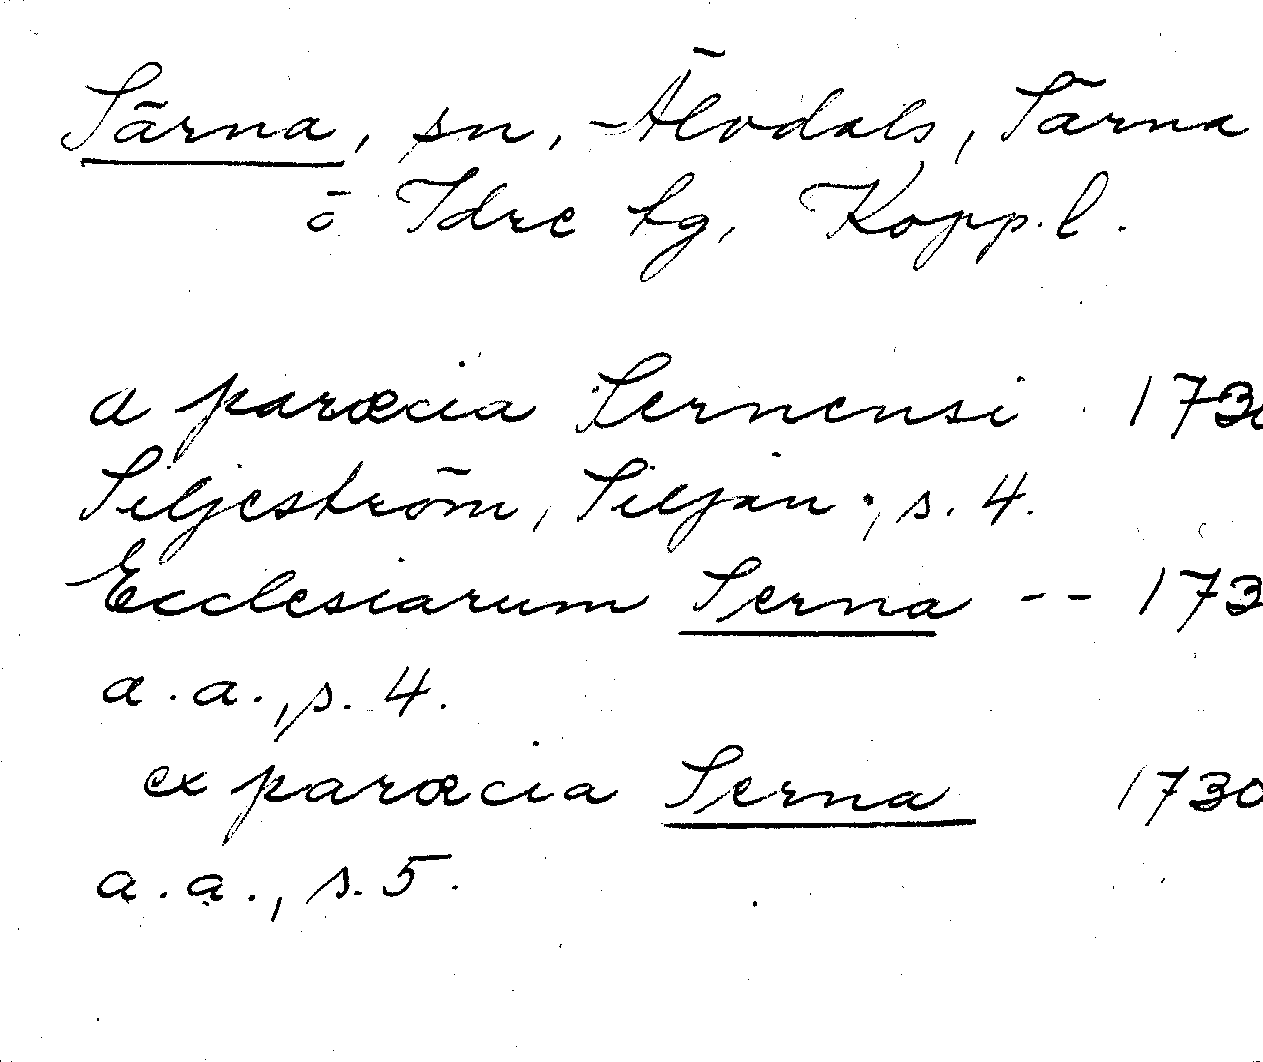 Särna, sn, Älvdals, Särna
o Idre tg, Kopp.l.
a paræcia Sernensi 1730
Siljeström, Siljan, s. 4.
Ecclesiarum Serna -- 173
a.a., s. 4.
ex paræcia Serna 1730
a.a., s. 5.